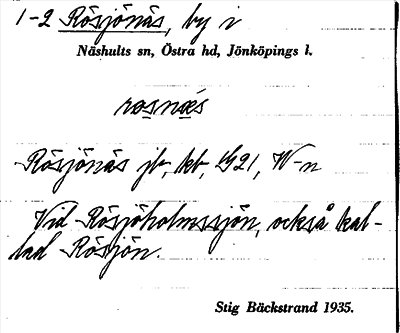 1-2 Rösjönäs, by i
Näshults sn, Östra hd, Jönköpings l.
rosnæs
Rösjönäs jb, kb, W-n
Vid Rösjöholmssjön, också kal-
lad Rösjön.
Stig Bäckstrand 1935.